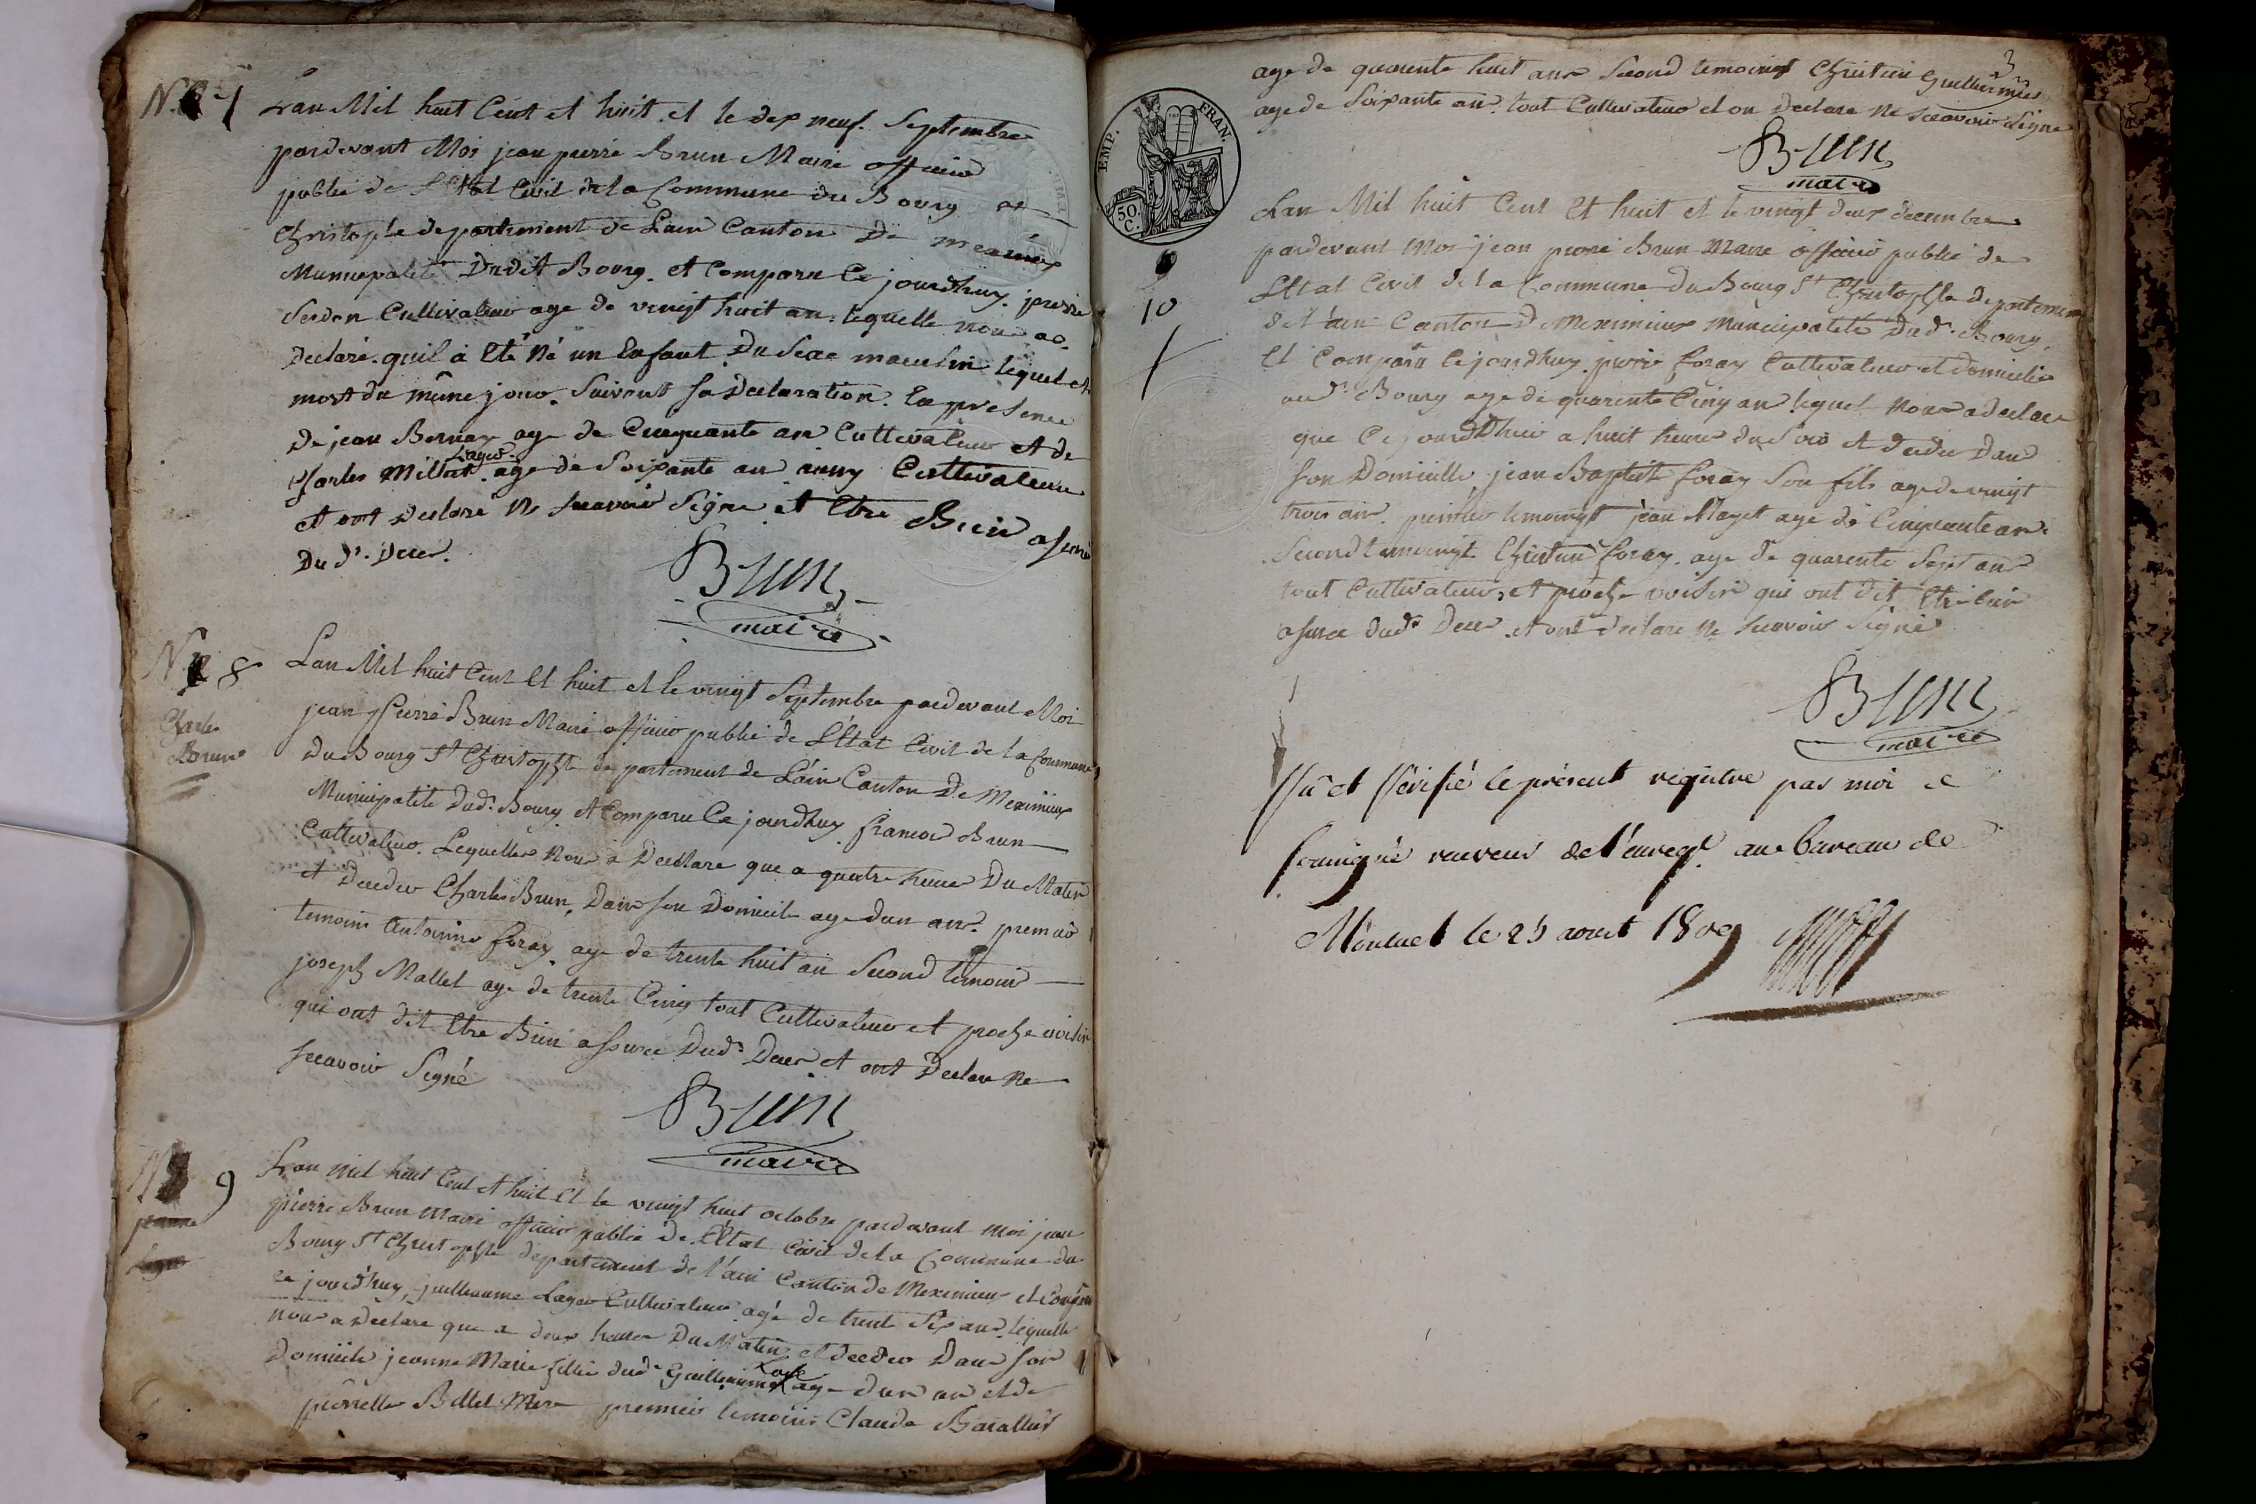 N. 7
Lan Mil huit Cent et huit et le dix neuf Septembre
pardevant Moi jean pierre Brun Maire officier
public de L'Etat Civil de la Commune du Bourg
Christophle departement de Lain Canton De
Municipalité Dudit Bourg et Comparu Ce jourdhuy pierre
Cultivateur age de vingt huit an lequelle nous a
Declaré quil à Eté Né un Enfant Du Sexe masculin lequel et
mort du même jour Suivant sa Declaration En presence
De jean Bernay age de Cinquante ans Cultivateur et de
Charles Millet age de Soixante an Cultivateur
et ont Declaré Ne Seavoir Signe et Etre Bien asuré
Du d. Deces.
Brun
maire
N. 8
Charles
Brun
Lan Mil huit Cent Et huit et le vingt Septembre pardevant Moi
jean Pierre Brun Maire officier public de L'Etat Civil de la Commune
Du Bourg St Christophle departement de Lain Canton De Meximieux
Municipalité Dud. Bourg et Comparu Ce jourdhuy francoi Brun
Cultivateur Lequelles Nous a Declare que a quatre heure Du Matin
et Decedes Charles Brun, Dans son Domicile age dun an premier
temoins Antoinne foray age de trente huit an Second temoins
joseph Mallet age de trente Cinq tout Cultivateur et proche voisin
qui ont dit Etre Bien assuree Dud. Deces et ont Declare Ne
Seeavoir Signé
Brun
maire
N. 9
jeanne
Lager
Lan mil huit Cent et huit Et le vingt huit octobre pardevant moi jean
pierre Brun Maire officier public de L'Etat Civil de la Commune du
Bourg St Christophle departement de l'ain Canton de Meximieux et Comparu
ce jourdhuy, guilleaume Lager Cultivateur agé de trente Six ans lequelle
nous a Declaré que a deux heures Du Matin et Decedes Dans son
Domicile jeanne Marie fillie dud. Guilleaume age dun an et de
pierrette Billet Mere premier temoins Claude
3
age de quarente huit ans Second temoingt Christin Guillermier
age de Soixante an tout Cultivateur et on Declare Ne Sceavoir Signe
Brun
maire
EMP. FRAN.
50 C.
10
Lan Mil huit Cent Et huit et le vingt deux decembre
pardevant Moi jean pierre Brun Maire officier public de
L'Etat Civil de la Commune Du Bourg St Christophle departement
de l'ain Canton De Meximieux Municipalité Dud. Bourg
Et Comparu Ce jourdhuy pierre foray Cultivateur et domicilie
aud. Bourg age de quarente Cinq an lequel Nous a declare
que Ce jourdhui a huit heure du Soir et decedee Dans
son Domicille, jean Baptist foray Son fils age de vingt
trois an premier temoingt jean Maget age de Cinquante an
Second temoingt Christin foray age de quarente Sept an
tout Cultivateur et proche voisin qui ont dit Etre bien
asuree dud. Deces et ont declare Ne Sceavoir Signé
Brun
maire
Vu et Vérifié le présent registre par moi
soussigné receveur de l'enregt. au bureau de
Montuel le 25 aout 1809